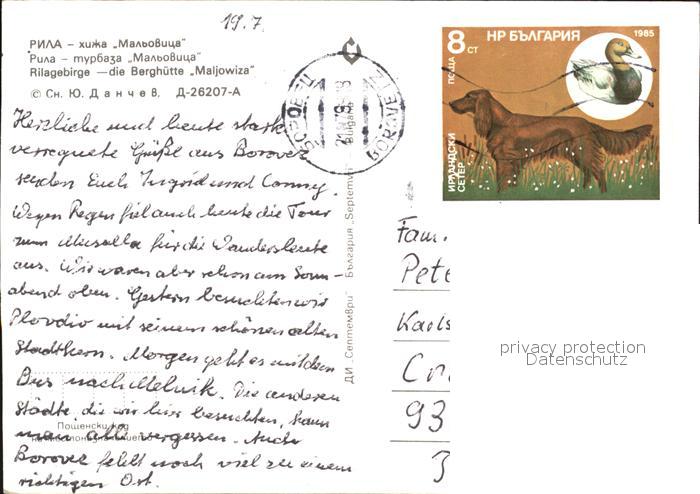 19.7.
РИЛА – хижа „Мальовица"
Рила – турбаза „Мальовица"
Rilagebirge — die Berghütte „Maljowiza"
© Сн. Ю. Данчев, Д-26207-А
Herzliche und heute stark
verregnete Grüße aus Borovez
senden Euch Ingrid und Conny.
Wegen Regen fiel auch heute die Tour
zum Musalla für die Wandersleute
aus. Wir waren aber schon am Sonn-
abend oben. Gestern besuchten wir
Plovdiv mit seinem schönen alten
Stadtkern. Morgen geht es mit dem
Bus nach Melnik. Die anderen
Städte, die wir hier besuchten, kann
man alle vergessen. Auch
Borovez fehlt noch viel zu einem
richtigen Ort.
Пощенски код
ДИ „Септември" България „Septemvri" Bulgaria
BOROVEZ
НР БЪЛГАРИЯ
1985
8 СТ
ПОЩА
ИРЛАНДСКИ
СЕТЕР
Fam.
Pete
Karls
93
privacy protection
Datenschutz